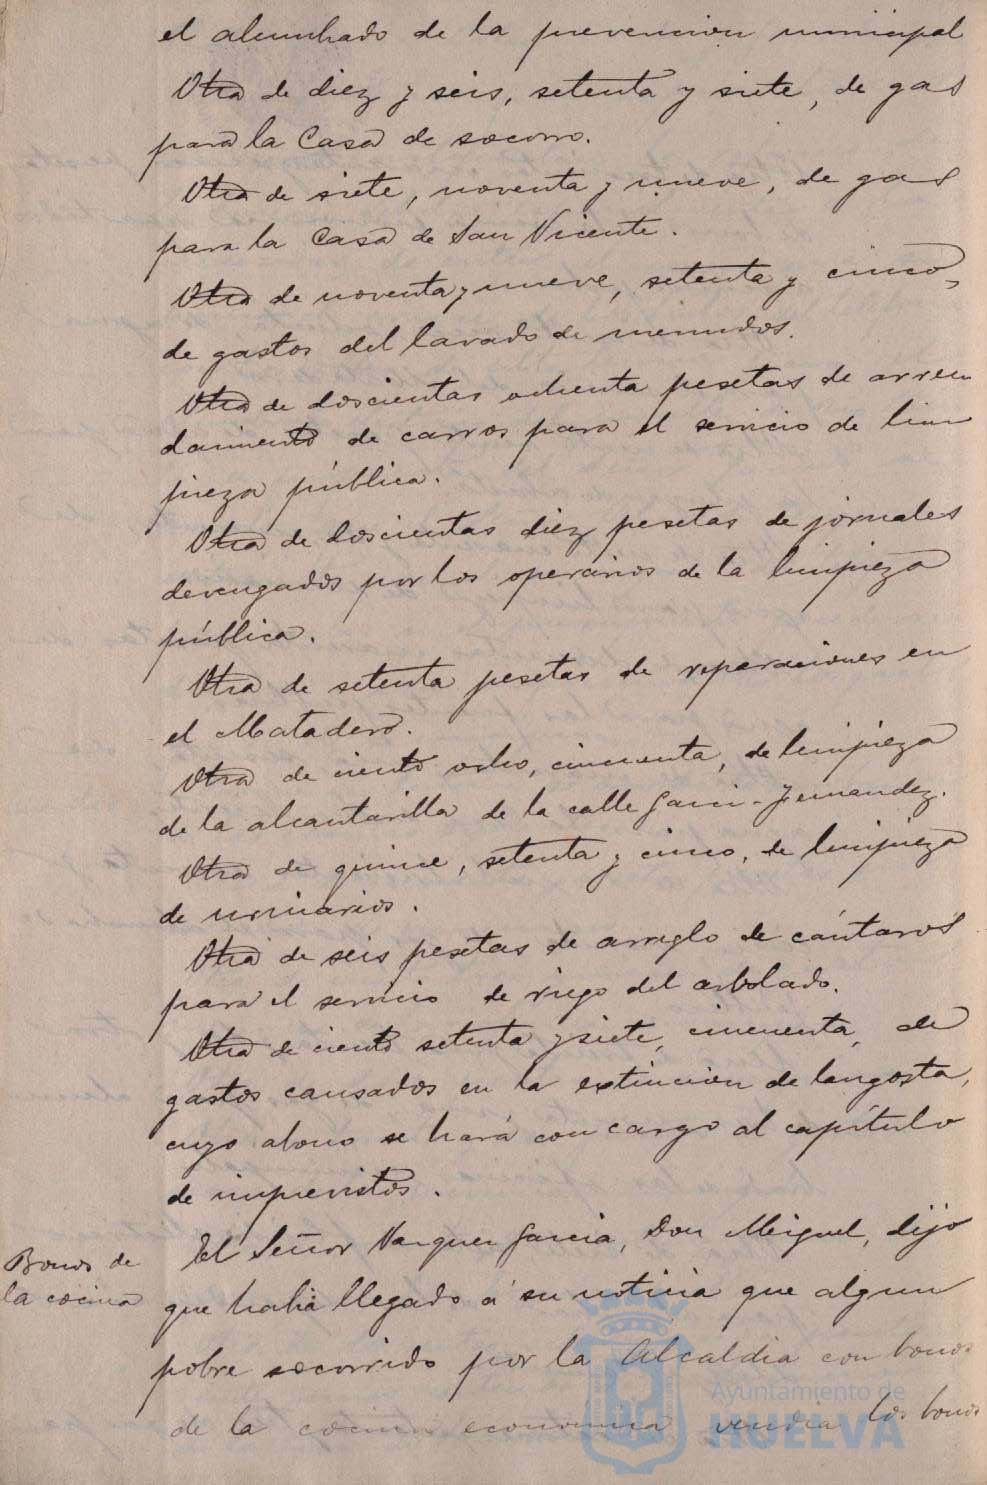 el alumbrado de la prevencion municipal
Otra de diez y seis, setenta y siete, de gas
para la Casa de socorro.
Otra de siete, noventa y nueve, de gas
para la Casa de San Vicente.
Otra de noventa y nueve, setenta y cinco,
de gastos del lavado de menudos.
Otra de doscientas ochenta pesetas de arren
damiento de carros para el servicio de lim
pieza pública.
Otra de doscientas diez pesetas de jornales
devengados por los operarios de la limpieza
pública.
Otra de setenta pesetas de reparaciones en
el Matadero.
Otra de ciento ocho, cincuenta, de limpieza
de la alcantarilla de la calle Garci-Fernandez.
Otra de quince, setenta y cinco, de limpieza
de urinarios.
Otra de seis pesetas de arreglo de cántaros
para el servicio de riego del arbolado.
Otra de ciento setenta y siete, cincuenta, de
gastos causados en la extincion de langosta,
cuyo abono se hará con cargo al capítulo
de imprevistos.
Bonos de
la cocina
El Señor Vazquez Garcia, Don Miguel, dijo
que habia llegado á su noticia que algun
pobre socorrido por la Alcaldia con bonos
de la cocina economica vendia los bonos
Ayuntamiento de
HUELVA